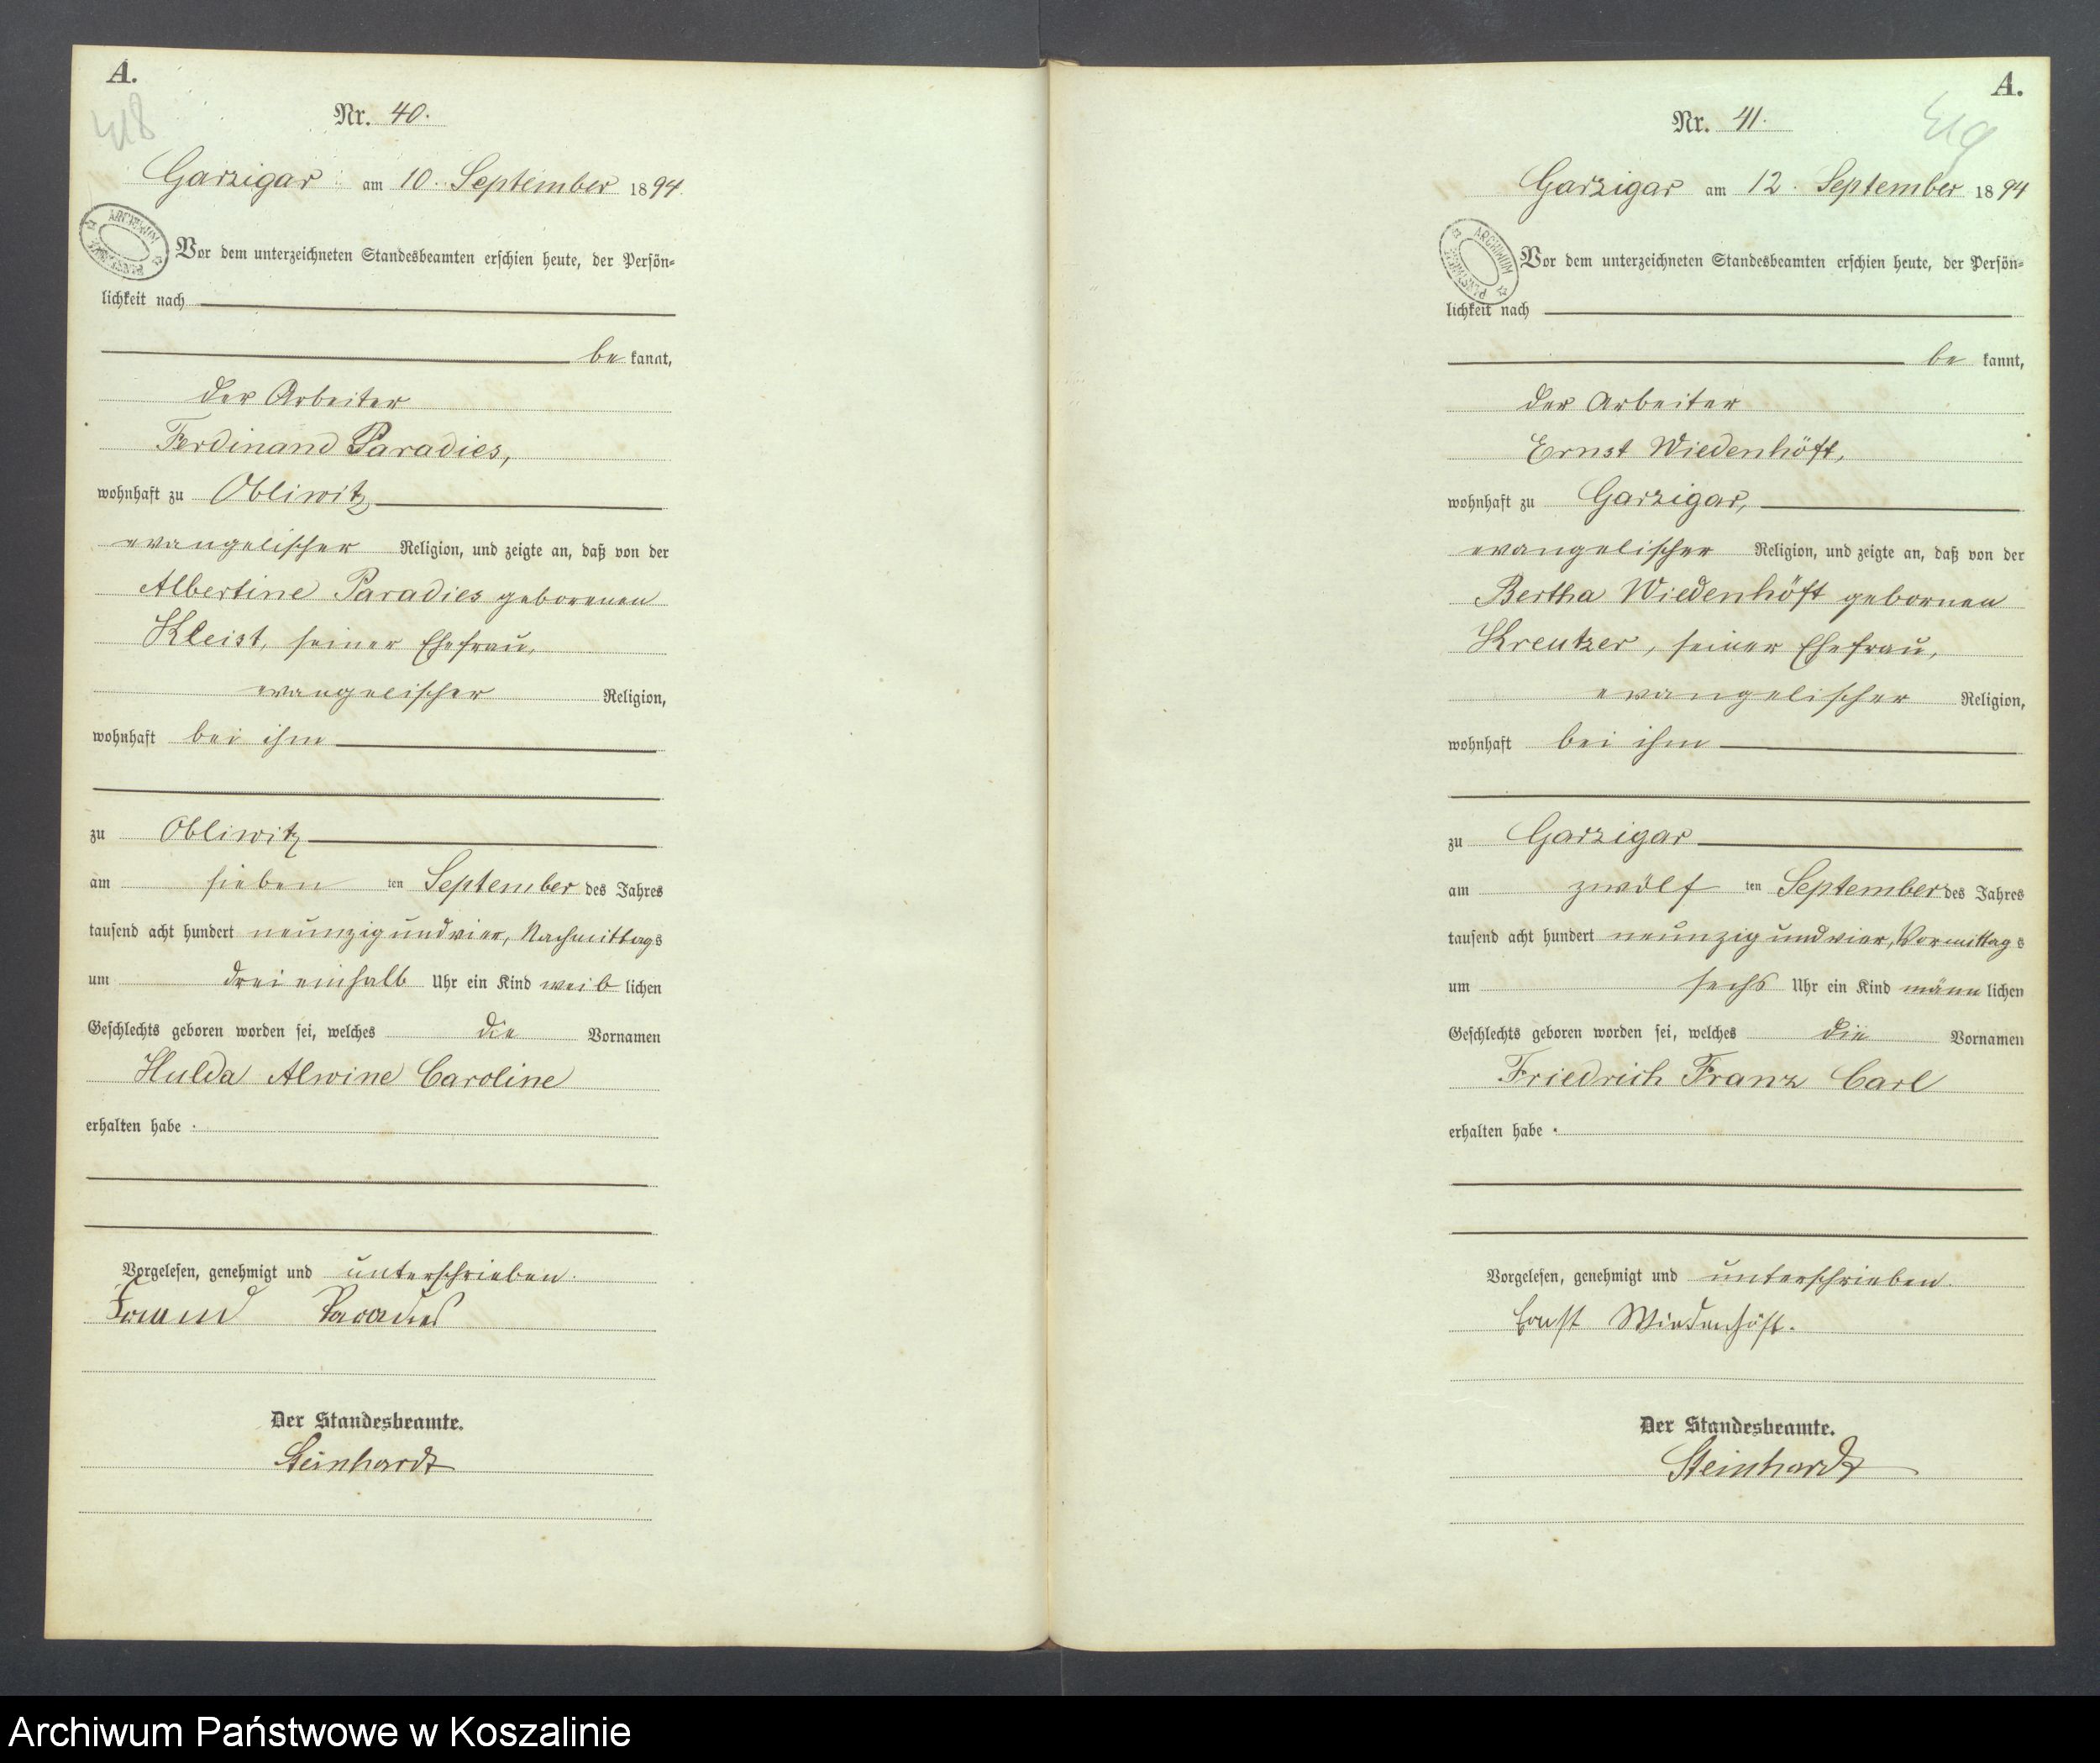 A.
418
Nr. 40.
Garzigar am 10. September 1894
ARCHIWUM
Vor dem unterzeichneten Standesbeamten erschien heute, der Persön=
lichkeit nach
be kannt,
der Arbeiter
Ferdinand Paradies,
wohnhaft zu Obliwitz
evangelischer Religion, und zeigte an, daß von der
Albertine Paradies geborenen
Kleist, seiner Ehefrau,
evangelischer Religion,
wohnhaft bei ihm
zu Obliwitz
am sieben ten September des Jahres
tausend acht hundert neunzig und vier, Nachmittags
um drei einhalb Uhr ein Kind weib lichen
Geschlechts geboren worden sei, welches die Vornamen
Hulda Alwine Caroline
erhalten habe.
Vorgelesen, genehmigt und unterschrieben.
Paradies
Der Standesbeamte.
Steinhardt
A.
419
Nr. 41.
Garzigar am 12. September 1894
ARCHIWUM
Vor dem unterzeichneten Standesbeamten erschien heute, der Persön=
lichkeit nach
be kannt,
der Arbeiter
Ernst Wiedenhöft,
wohnhaft zu Garzigar,
evangelischer Religion, und zeigte an, daß von der
Bertha Wiedenhöft gebornen
Kreutzer, seiner Ehefrau,
evangelischer Religion,
wohnhaft bei ihm
zu Garzigar
am zwölf ten September des Jahres
tausend acht hundert neunzig und vier, Vormittags
um sechs Uhr ein Kind männ lichen
Geschlechts geboren worden sei, welches die Vornamen
Friedrich Franz Carl
erhalten habe.
Vorgelesen, genehmigt und unterschrieben.
Ernst Wiedenhöft.
Der Standesbeamte.
Steinhardt
Archiwum Państwowe w Koszalinie